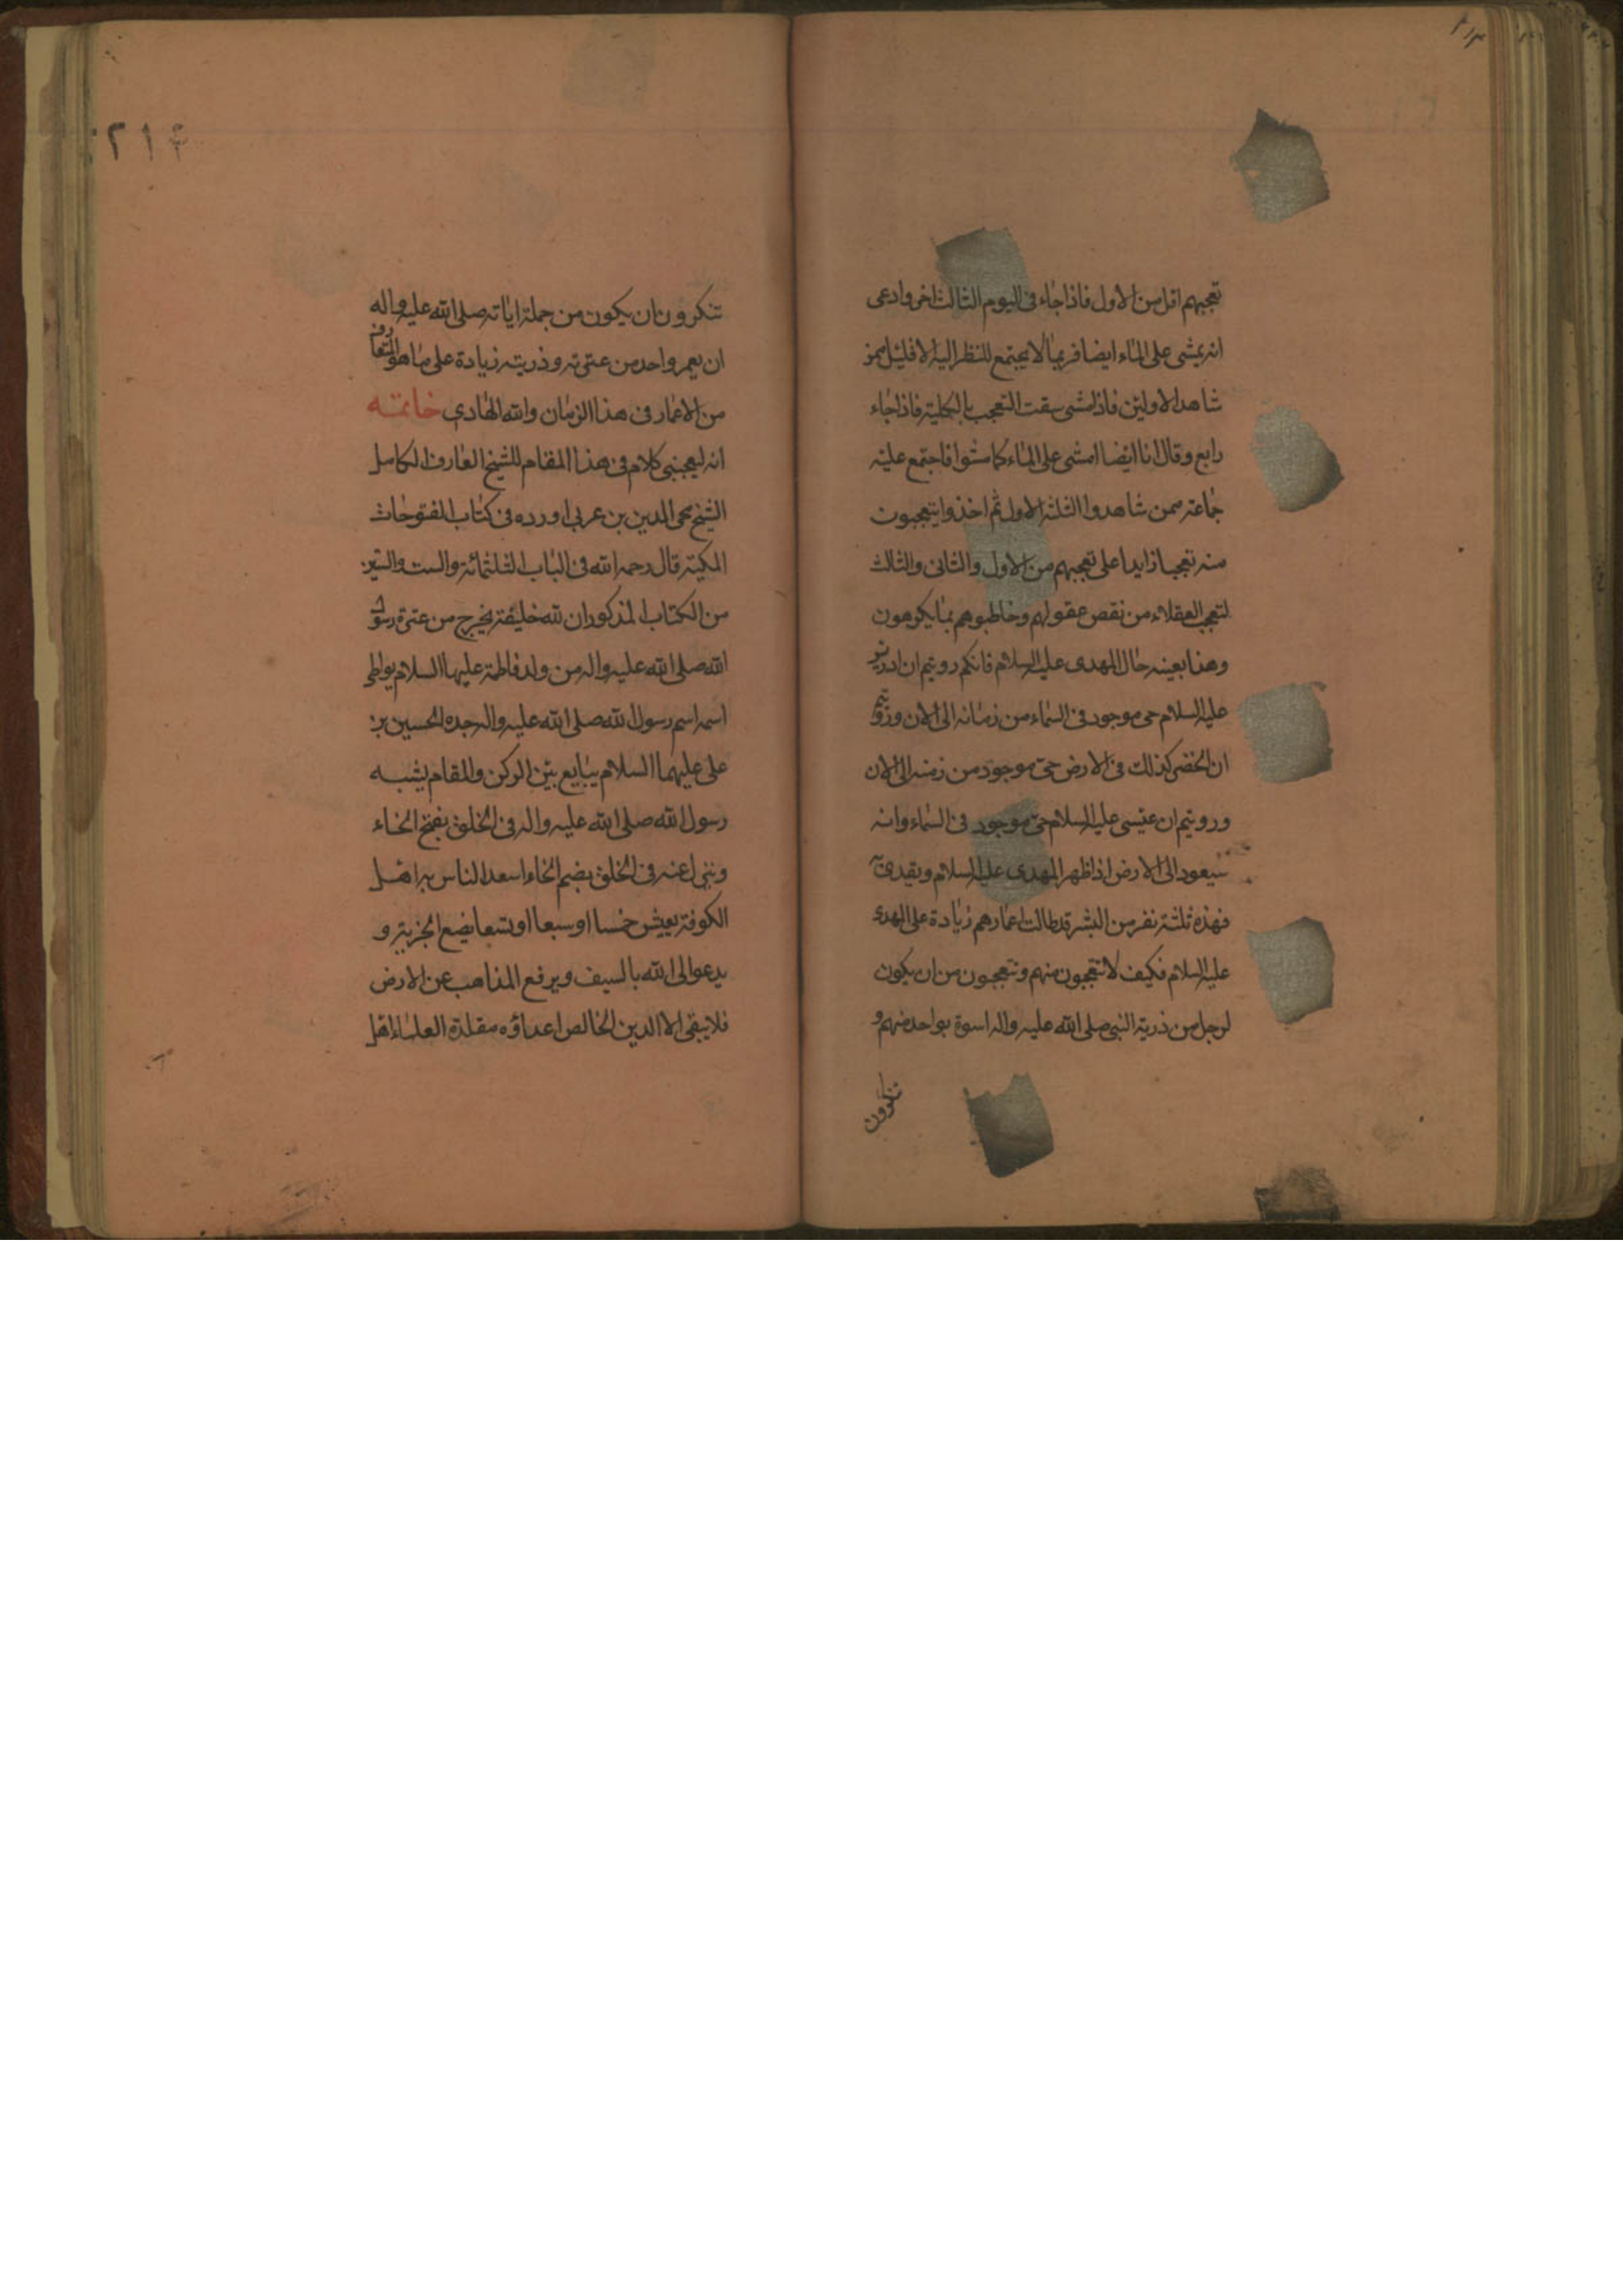 ٢١٣
تعجبهم اقل من الاول فاذا جاء فى اليوم الثالث اخر وادعى
انه يمشى على الماء ايضا فربما لا يجتمع للنظر اليه الا قليل ممن
شاهد الاولين فاذا مشى سقت التعجب بالكلية فاذا جاء
رابع وقال انا ايضا امشى على الماء كما مشوا فاجتمع عليه
جماعة ممن شاهدوا الثلثة الاول ثم اخذوا يتعجبون
منه تعجبا زايدا على تعجبهم من الاول والثانى والثالث
لتعجب العقلاء من نقص عقولهم وخاطبوهم بما يكرهون
وهذا بعينه حال المهدى عليه السلام فانكم رويتم ان ادريس
عليه السلام حى موجود فى السماء من زمانه الى الان ورويتم
ان الخضر كذلك فى الارض حى موجود من زمنه الى الان
ورويتم ان عيسى عليه السلام حى موجود فى السماء وانه
سيعود الى الارض اذا ظهر المهدى عليه السلام ويقتدى به
فهذه ثلثة نفر من البشر قد طالت اعمارهم زيادة على المهدى
عليه السلام فكيف لا تتعجبون منهم وتتعجبون من ان يكون
لرجل من ذرية النبى صلى الله عليه واله اسوة بواحد منهم و
تنكرون
٢١٤
تنكرون ان يكون من جملة اياته صلى الله عليه واله
ان يعمر واحد من عترته وذريته زيادة على ما هو المتعارف
من الاعمار فى هذا الزمان والله الهادى خاتمه
انه ليعجبنى كلام فى هذا المقام للشيخ العارف الكامل
الشيخ محى الدين بن عربى اورده فى كتاب الفتوحات
المكية قال رحمه الله فى الباب الثلثمائة والست والستين
من الكتاب المذكور ان لله خليفة يخرج من عترة رسول
الله صلى الله عليه واله من ولد فاطمة عليها السلام يواطى
اسمه اسم رسول الله صلى الله عليه واله جده الحسين بن
على عليهما السلام يبايع بين الركن والمقام يشبه
رسول الله صلى الله عليه واله فى الخلق بفتح الخاء
وينزل عنه فى الخلق بضم الخاء اسعد الناس به اهل
الكوفة يعيش خمسا او سبعا او تسعا يضع الجزية و
يدعو الى الله بالسيف ويرفع المذاهب عن الارض
فلا يبقى الا الدين الخالص اعداؤه مقلدة العلماء اهل